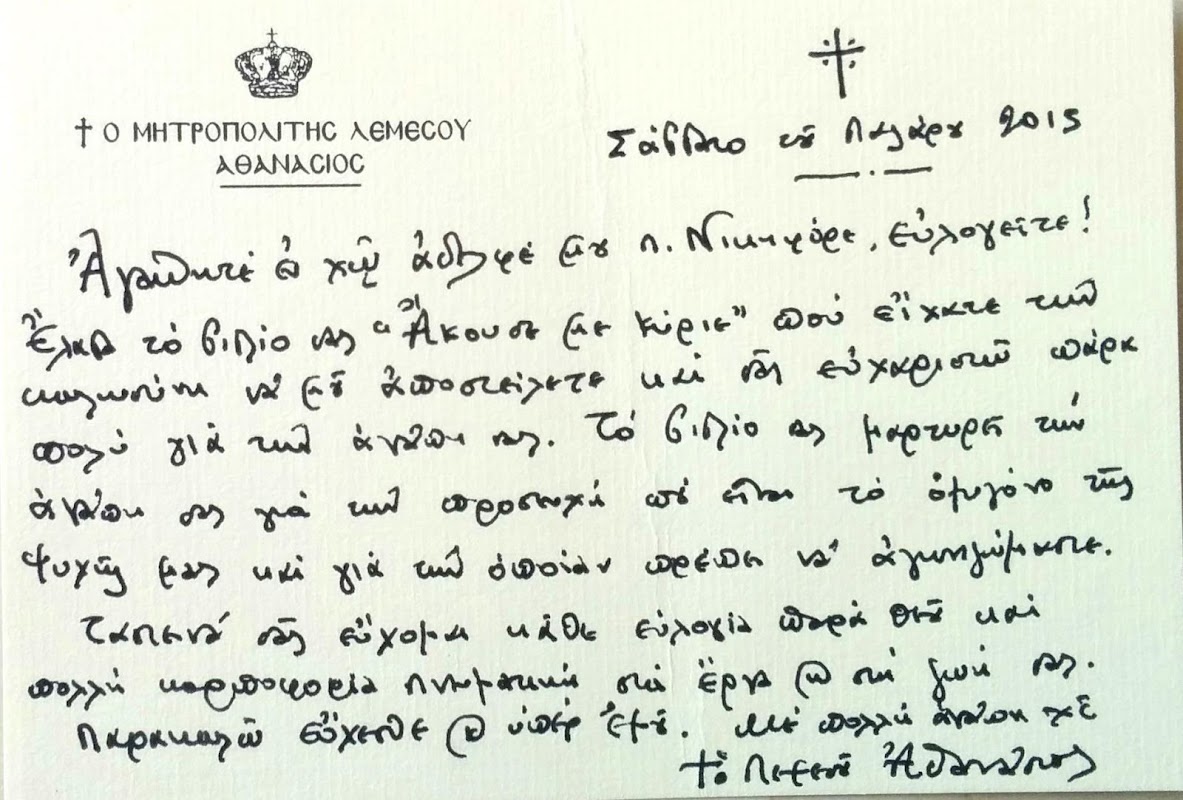 † Ο ΜΗΤΡΟΠΟΛΙΤΗΣ ΛΕΜΕΣΟΥ
ΑΘΑΝΑΣΙΟΣ
Σάββατο τοῦ Λαζάρου 2015
Ἀγαπητέ ἐν Χῷ ἀδελφέ μου π. Νικηφόρε, εὐλογεῖτε!
Ἔλαβα τό βιβλίο σας "Ἄκουσέ με Κύριε" πού εἴχατε τήν
καλωσύνη νά μοῦ ἀποστείλετε καί σᾶς εὐχαριστῶ πάρα
πολύ γιά τήν ἀγάπη σας. Τό βιβλίο σας μαρτυρεῖ τήν
ἀγάπη σας γιά τήν προσευχή πού εἶναι τό ὀξυγόνο τῆς
ψυχῆς μας καί γιά τήν ὁποίαν πρέπει νά ἀγωνιζώμαστε.
Ταπεινά σᾶς εὔχομαι κάθε εὐλογία παρά Θεοῦ καί
πολλή καρποφορία πνευματική στά ἔργα καί στή ζωή σας.
Παρακαλῶ εὔχεσθε καί ὑπέρ ἐμοῦ. Μέ πολλή ἀγάπη Χῦ
† ὁ Λεμεσοῦ Ἀθανάσιος